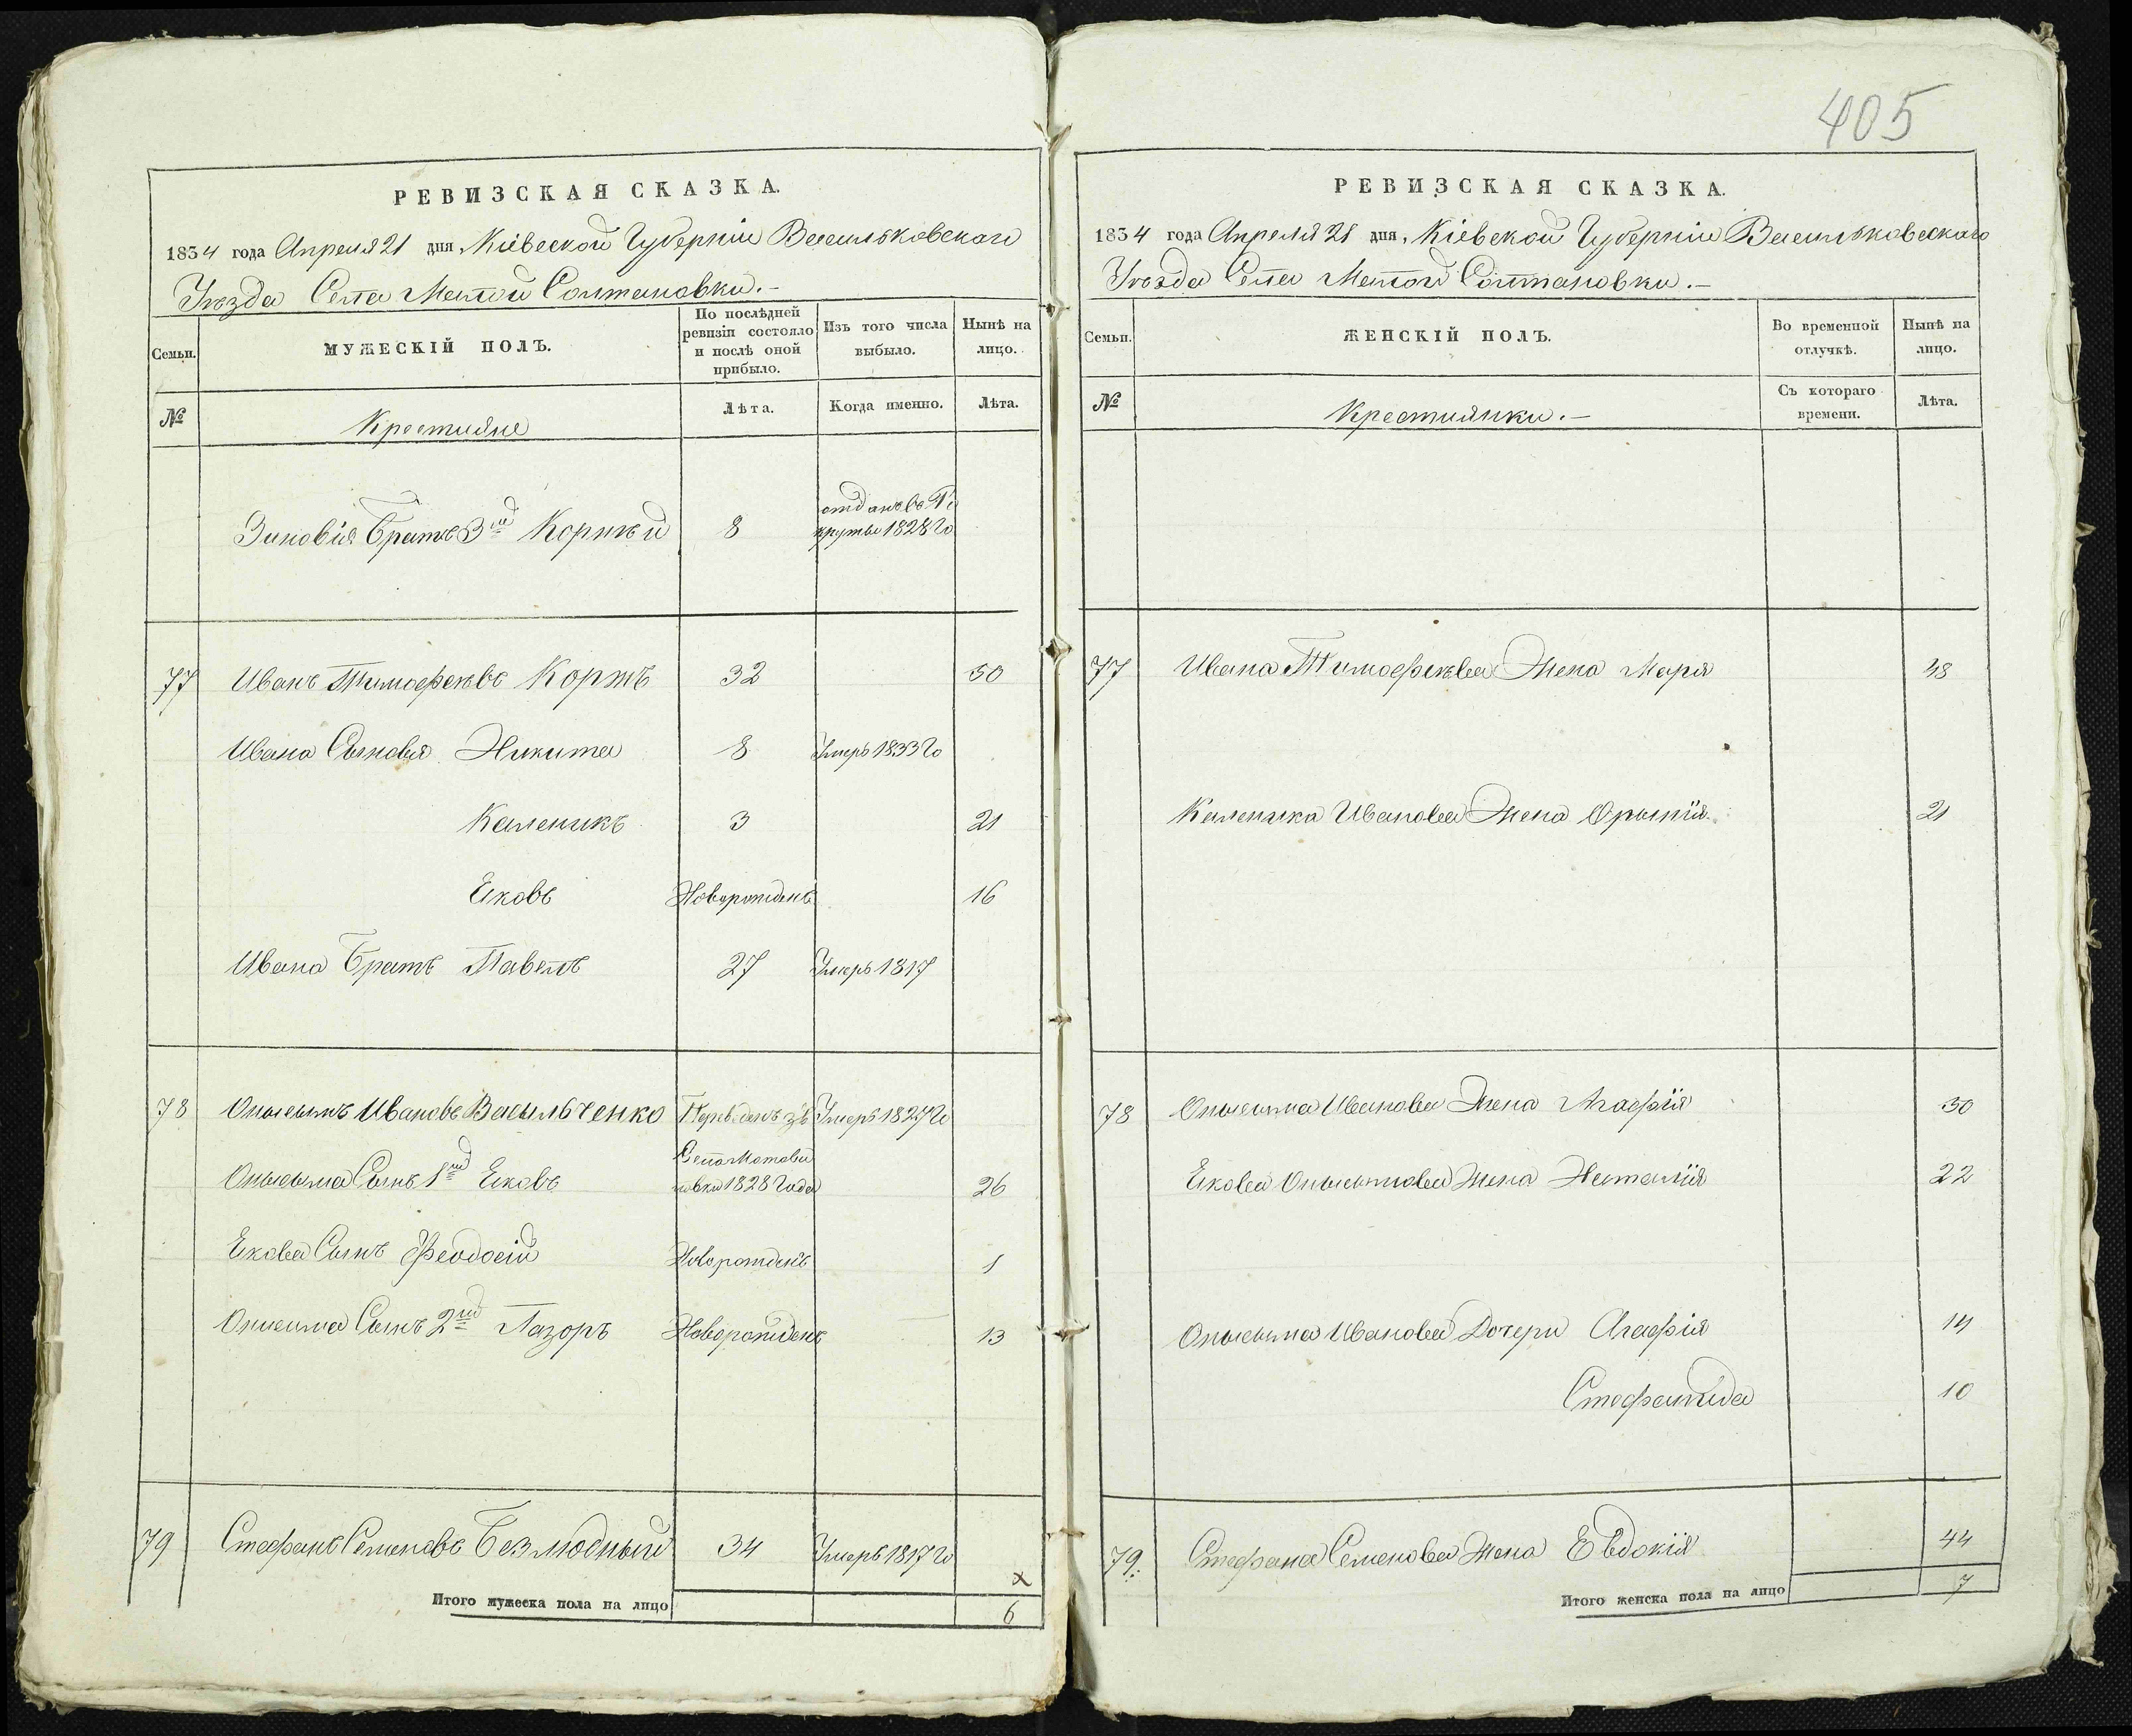 405
РЕВИЗСКАЯ СКАЗКА.
1834 года Апреля 21 дня, Кіевской Губерніи Васильковского
Уезда Села Малой Солтановки.-
Семьи.
МУЖЕСКІЙ ПОЛЪ.
По послѣдней ревизіи состояло и послѣ оной прибыло.
Изъ того числа выбыло.
Нынѣ на лицо.
№
Крестияне
Лѣта.
Когда именно.
Лѣта.
Зиновія Братъ 3й Корнѣй 8 отданъ въ Ре
круты 1828 Го
77 Иванъ Тимофеевъ Коржъ 32 50
Ивана Сыновья Никита 8 Умеръ 1833 Го
Каленикъ 3 21
Яковъ Новорожденъ 16
Ивана Братъ Павелъ 27 Умеръ 1817
78 Онысымъ Ивановъ Васыльченко Переведенъ зъ Умеръ 1827 Го
Села Мотови
Онысыма Сынъ 1й Яковъ ловки 1828 Года 26
Якова Сынъ Феодосій Новорожденъ 1
Онысыма Сынъ 2й Лазоръ Новорожденъ 13
79 Стефанъ Семеновъ Безлюдный 34 Умеръ 1817 Го
х
Итого мужеска пола на лицо 6
РЕВИЗСКАЯ СКАЗКА.
1834 года Апреля 21 дня, Кіевской Губерніи Васильковского
Уезда Села Малой Солтановки.-
Семьи.
ЖЕНСКІЙ ПОЛЪ.
Во временной отлучкѣ.
Нынѣ на лицо.
№
Крестиянки.-
Съ котораго времени.
Лѣта.
77 Ивана Тимофеева Жена Маря 48
Каленика Иванова Жена Орынія 21
78 Онысыма Иванова Жена Агафія 50
Якова Онысымова Жена Наталія 22
Онысыма Иванова Дочери Агафія 14
Стефанида 10
79. Стефана Семенова Жена Евдокія 44
Итого женска пола на лицо 7